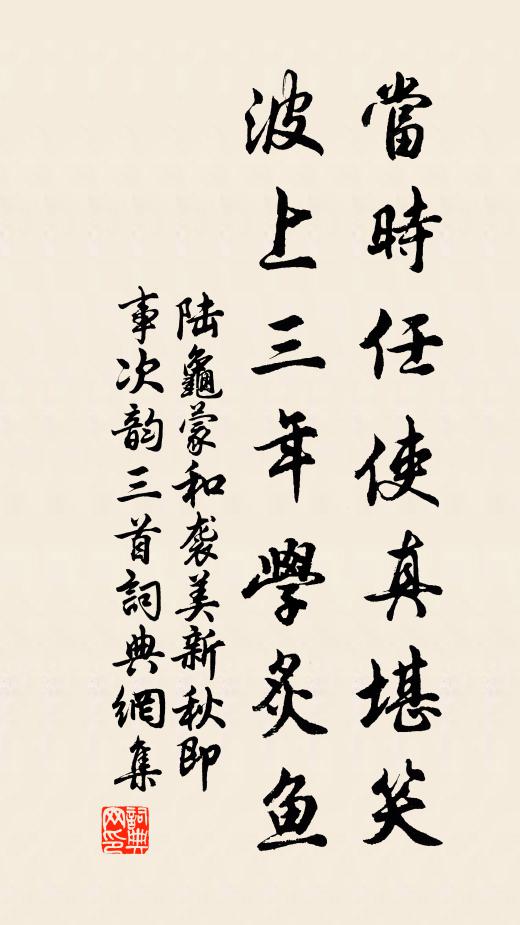 當時任使真堪笑
波上三年學炙鱼
陆龜蒙和袭美新秋即
事次韵三首詞典網集
詞典网印